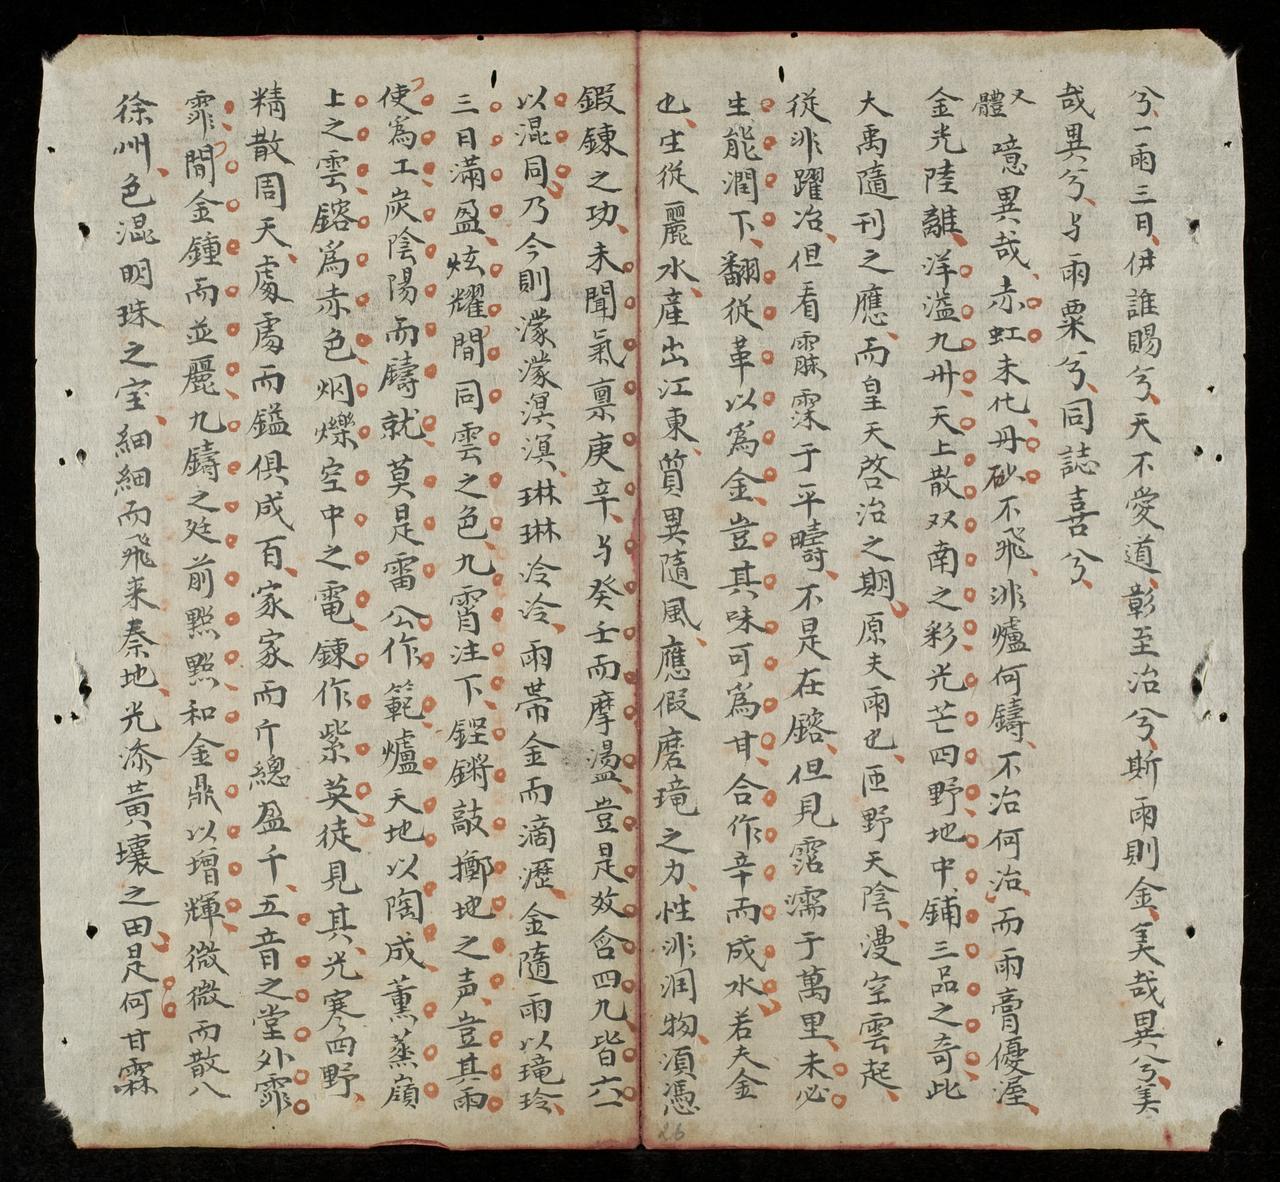 兮、一雨三日、伊誰賜兮、天不愛道、彰至治兮、斯雨則金、美哉異兮、美
哉異兮、与雨粟兮、同誌喜兮、
又體 噫異哉、赤虹未化、丹砂不飛、非爐何鑄、不冶何冶、而雨膏優渥、
金光陸離、洋溢九州、天上散双南之彩、光芒四野、地中鋪三品之奇、此
大禹隨刊之應、而皇天啓治之期、原夫雨也、匝野天陰、漫空雲起、
從非躍冶、但看霢霂于平疇、不是在鎔、但見霑濡于萬里、未必
生能潤下、翻從革以為金、豈其味可為甘、合作辛而成水、若夫金
也、生從麗水、產出江東、質異隨風、應假磨琦之力、性非潤物、須憑
鍜鍊之功、未聞氣禀庚辛、与癸壬而摩盪、豈是效含四九、皆六一
以混同、乃今則濛濛溟溟、琳琳冷冷、雨帶金而滴瀝、金隨雨以琦玲
三日滿盈、炫耀間同雲之色、九霄注下、鏗鏘敲擲地之声、豈其雨
使為工、炭陰陽而鑄就、莫是雷公作範、爐天地以陶成、薰蒸嶺
上之雲、鎔為赤色、烟爍空中之電、鍊作紫英、徒見其、光寒四野、
精散周天、處處而鎰俱成百、家家而斤總盈千、五音之堂外霏
霏、間金鍾而並麗、九鑄之廷前點點、和金鼎以增輝、微微而散八
徐州、色混明珠之室、細細而飛来秦地、光添黄壤之田、是何甘霖